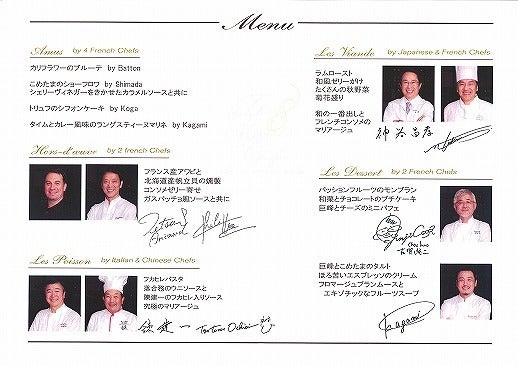 Menu
Amus by 4 French Chefs
カリフラワーのブルーテ by Batton
こめたまのショーフロワ by Shimada
シェリーヴィネガーをきかせたカラメルソースと共に
トリュフのシフォンケーキ by Koga
タイムとカレー風味のラングスティーヌマリネ by Kagami
Hors-d'œuvre by 2 french Chefs
フランス産アワビと
北海道産帆立貝の燻製
コンソメゼリー寄せ
ガスパッチョ風ソースと共に
Les Poisson by Italian & Chinese Chefs
フカヒレパスタ
落合務のウニソースと
陳建一のフカヒレ入りソース
究極のマリアージュ
Les Viande by Japanese & French Chefs
ラムロースト
和風ゼリーがけ
たくさんの秋野菜
菊花盛り
和の一番出しと
フレンチコンソメの
マリアージュ
Les Dessert by 2 French Chefs
パッションフルーツのモンブラン
和栗とチョコレートのプチケーキ
巨峰とチーズのミニパフェ
巨峰とこめたまのタルト
ほろ苦いエスプレッソのクリーム
フロマージュブランムースと
エキゾチックなフルーツスープ
Kagami